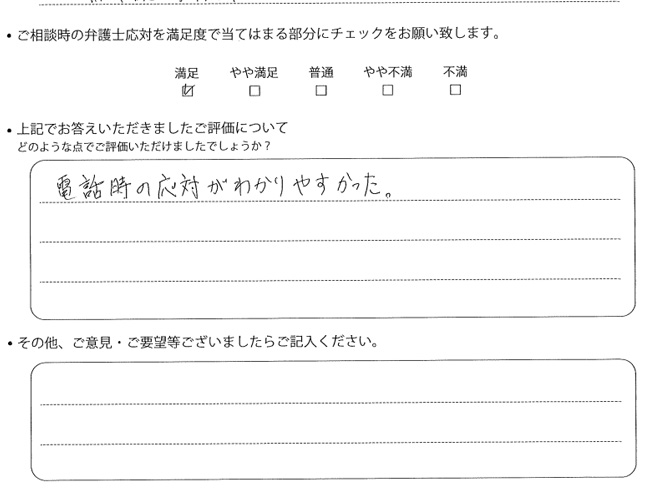 ・ご相談時の弁護士応対を満足度で当てはまる部分にチェックをお願い致します。
満足 やや満足 普通 やや不満 不満
☑ □ □ □ □
・上記でお答えいただきましたご評価について
どのような点でご評価いただけましたでしょうか？
電話時の応対がわかりやすかった。
・その他、ご意見・ご要望等ございましたらご記入ください。